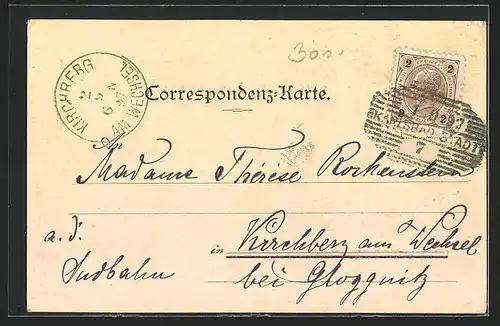 30.-
KIRCHBERG
AM WECHSEL
Correspondenz-Karte.
2 2
2 2
KARLSBAD STADT
7
Madame Thérèse Rockenstein
a. d.
Südbahn
in Kirchberg am Wechsel
bei Gloggnitz